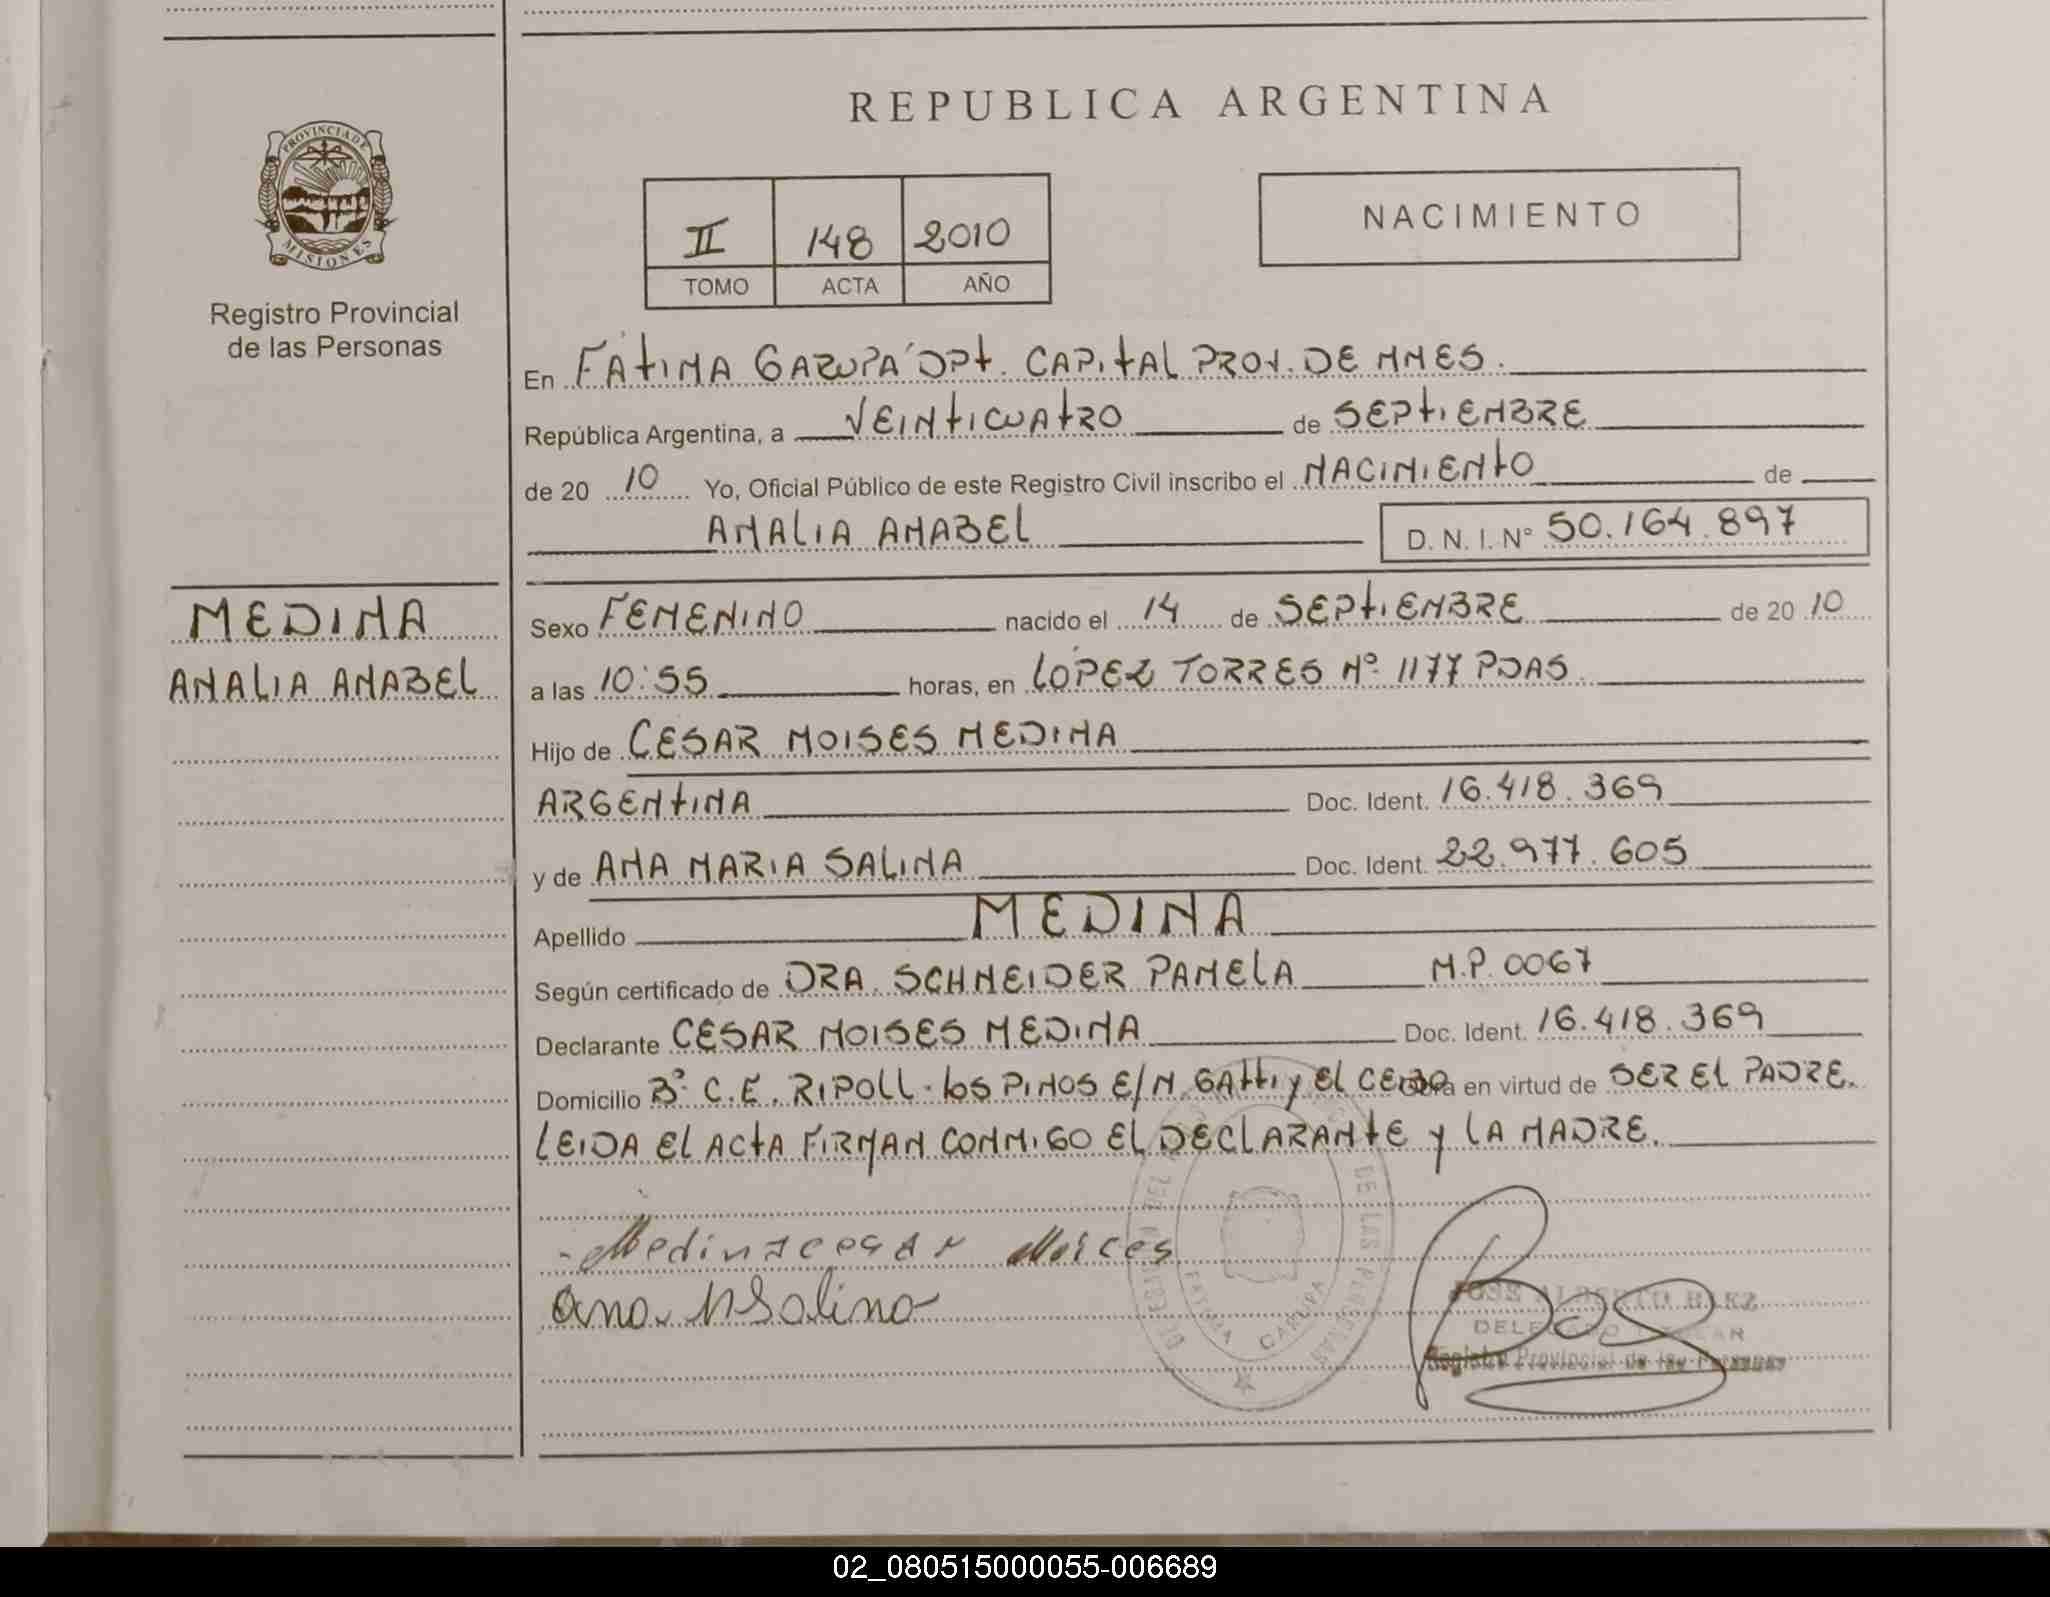 REPUBLICA ARGENTINA
PROVINCIA DE
MISIONES
Registro Provincial
de las Personas
II 148 2010
TOMO ACTA AÑO
NACIMIENTO
En FÁTIMA GARUPA DPT. CAPITAL PROV. DE MNES.
República Argentina, a VEINTICUATRO de SEPTIEMBRE
de 20 10 Yo, Oficial Público de este Registro Civil inscribo el NACIMIENTO de
ANALIA ANABEL D. N. I. N° 50.164.897
MEDINA
ANALIA ANABEL
Sexo FEMENINO nacido el 14 de SEPTIEMBRE de 20 10
a las 10:55 horas, en LÓPEZ TORRES Nº 1177 PDAS
Hijo de CESAR MOISES MEDINA
ARGENTINA Doc. Ident. 16.418.369
y de ANA MARIA SALINA Doc. Ident. 22.977.605
Apellido MEDINA
Según certificado de DRA. SCHNEIDER PAMELA M.P. 0067
Declarante CESAR MOISES MEDINA Doc. Ident. 16.418.369
Domicilio B° C.E. RIPOLL - LOS PINOS E/N. GATTI y EL CEIBO Obra en virtud de SER EL PADRE.
LEIDA EL ACTA FIRMAN CONMIGO EL DECLARANTE y LA MADRE.
Medina cesar Moices
Ana M Salina
DE LAS PERSONAS
FATIMA GARUPA
JOSE ALBERTO BAEZ
DELEGADO TITULAR
Registro Provincial de las Personas
02_080515000055-006689